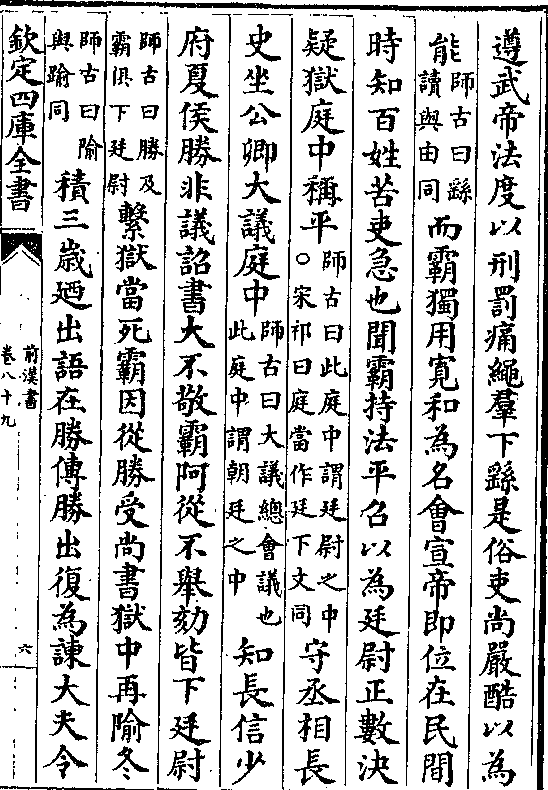 遵武帝法度以刑罰痛繩羣下繇是俗吏尚嚴酷以為
能師古曰繇讀與由同而霸獨用寛和為名㑹宣帝即位在民間
時知百姓苦吏急也聞霸持法平召以為廷尉正數決
疑獄庭中稱平師古曰此庭中謂廷尉之中○宋祁曰庭當作廷下文同守丞相長
史坐公卿大議庭中師古曰大議總會議也此庭中謂朝廷之中知長信少
府夏侯勝非議詔書大不敬霸阿從不舉劾皆下廷尉
師古曰勝及霸俱下廷尉繫獄當死霸因從勝受尚書獄中再隃冬
師古曰隃與踰同積三歲廼出語在勝傳勝出復為諫大夫令
欽定四庫全書
前漢書
卷八十九
六